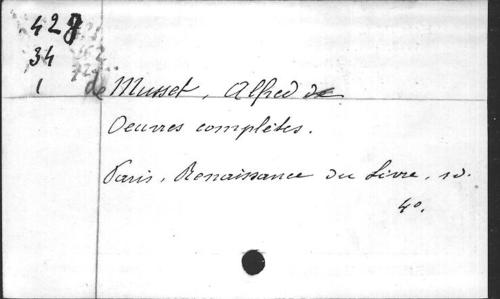 427
34
1
de Musset, Alfred de
Oeuvres complètes.
Paris, Renaissance du Livre, sd.
4°.